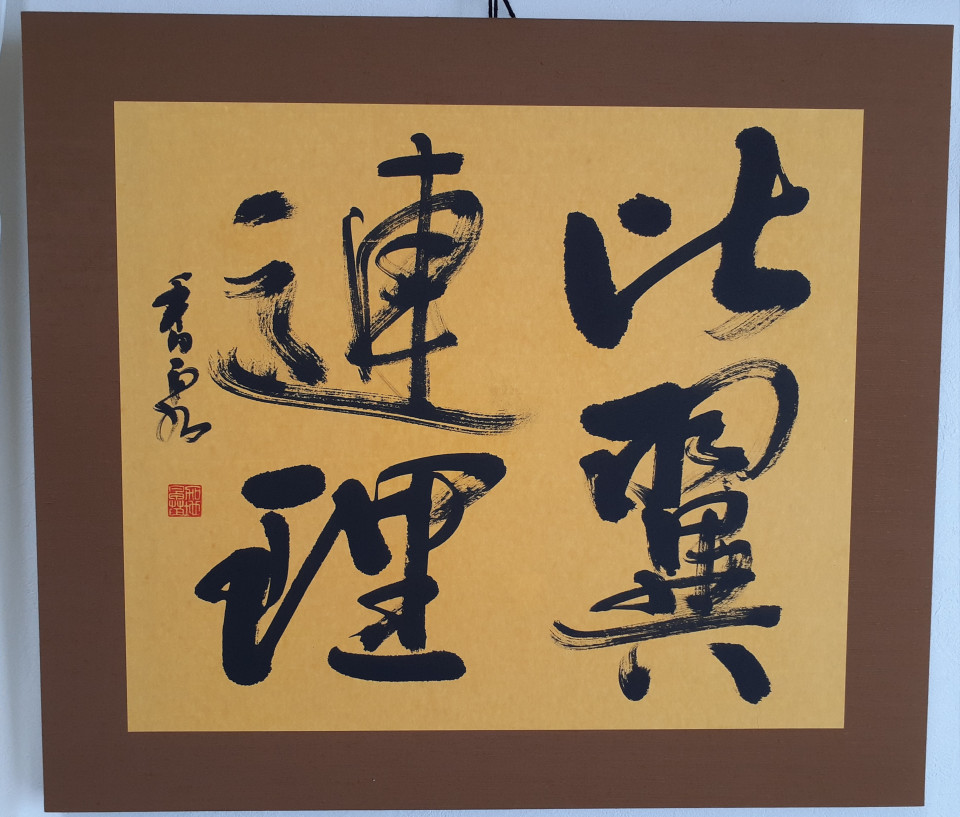 比翼
連理